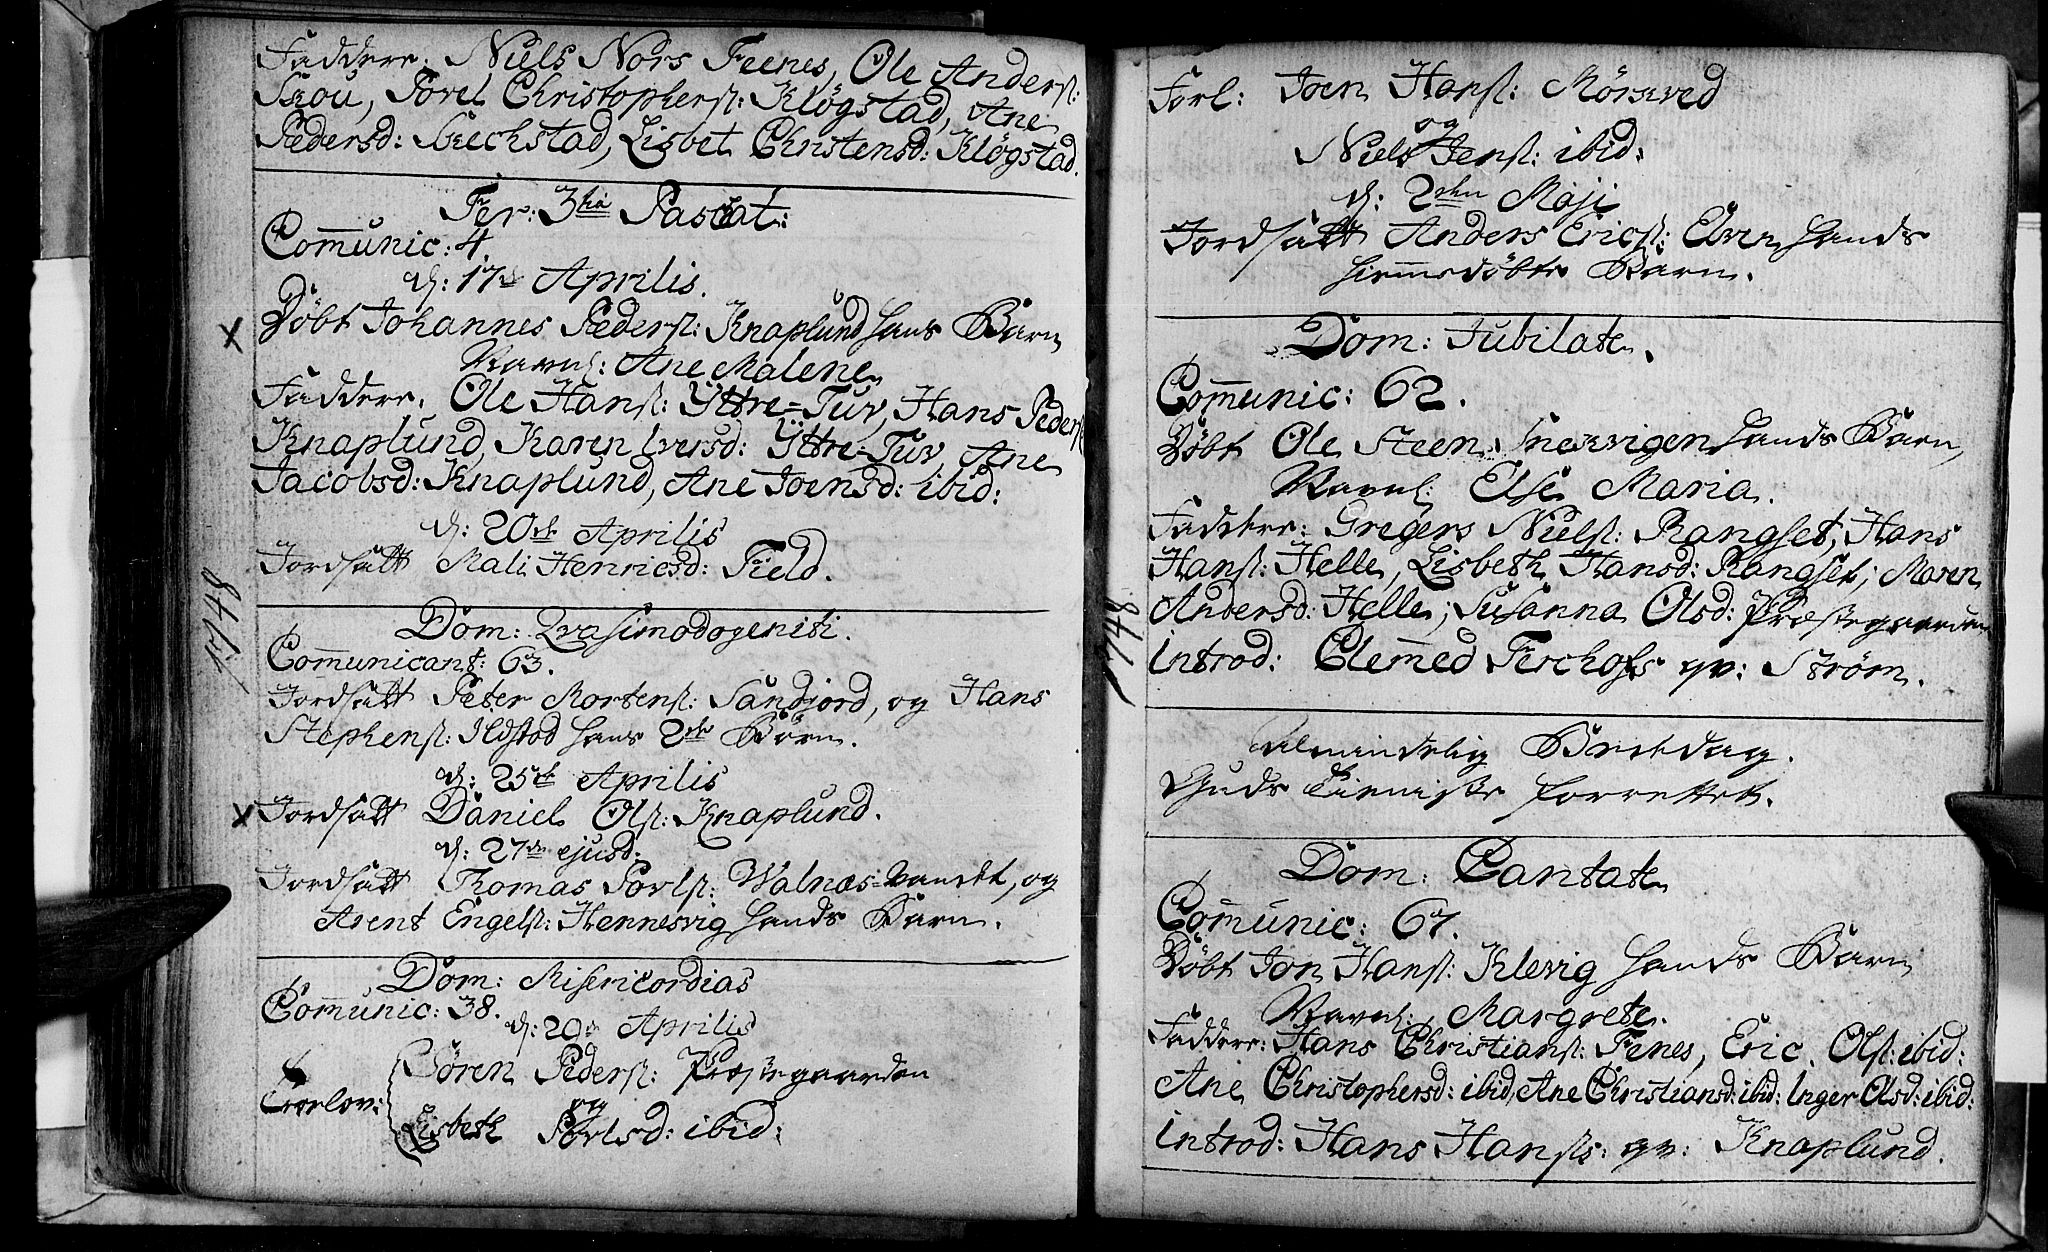 Faddere: Niels Nors Feenes, Ole Anders:
Skou, Povel Christophers: Kløgstad, Ane
Pedersd: Skechstad, Lisbet Christensd: Kløgstad.
Fer: 3tia Pascat:
Communic: 4
d: 17de Aprilis.
Døbt Johannes Peders: Knaplund hans Barn
Navnl: Ane Malene
Faddere. Ole Hans: Yttre-Tuv, Hans Peders:
Knaplund, Karen Iversd: Yttre-Tuv, Ane
Jacobsd: Knaplund, Ane Joensd: ibid:
d: 20de Aprilis
Jordsatt Mali Henricsd: Field.
1748
Dom: Qvasimodogeniti.
Communicant: 63.
Jordsatt Peter Mortens: Sandjord, og Hans
Stephens: Ildstad hans 2de Børn.
d: 25de Aprilis
Jordsatt Daniel Ols: Knaplund.
d: 27de ejusd:
Jordsatt Thomas Povls: Walnæs-Vandet, og
Arent Engels: Hennesvig hands Barn.
Dom: Misericordias
Communic: 38.
d: 29de Aprilis
Trorlov: Søren Peders: Præstegaarden
og
Lisbeth Povlsd: ibid:
Forl: Joen Hans: Mørkved
og
Niels Jens: ibid:
d: 2den Maji
Jordsatt Anders Erics: Elven hands
hiemmedøbte Barn.
Dom: Jubilate.
Communic: 62.
Døbt Ole Steen Snekvigen hands Barn,
Navnl: Else Maria.
Faddere: Gregers Niels: Rangset, Hans
Hans: Helle, Lisbeth Hansd: Rangset, Maren
Andersd: Helle, Susanna Olsd: Præstegaarden
introd: Clemmed Ferchofs qv: Strøm.
1748
Almindelig Beededag.
Guds Tieniste forrettet.
Dom: Cantate
Communic: 67.
Døbt Jon Hans: Klevig hands Barn
Navnl: Margrete.
Faddere: Hans Christians: Fenes, Eric Ols: ibid:
Ane Christophersd: ibid, Ane Christiansd: ibid: Inger Olsd: ibid:
introd: Hans Hanses: qv: Knaplund.